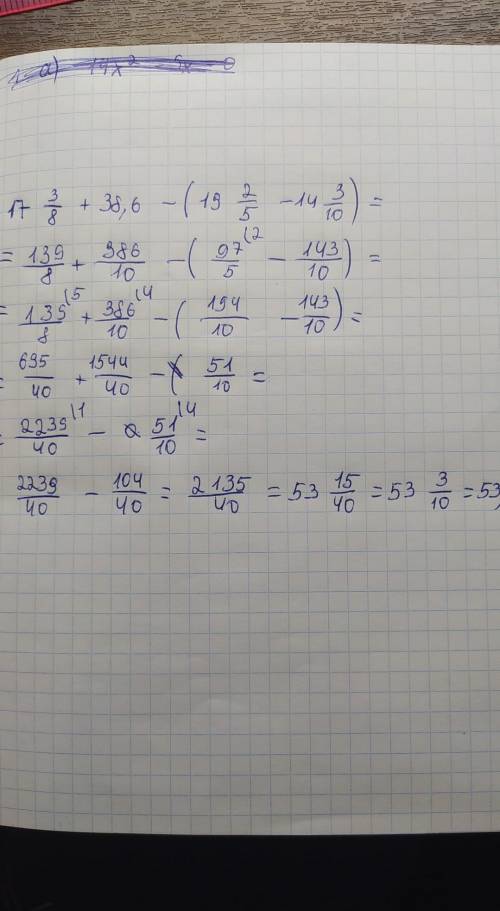 1. a) 14x² 5x 0
17 3/8 + 38,6 - (19 2/5 - 14 3/10) =
= 139/8 + 386/10 - (97/5 (2 - 143/10) =
= 139/8 (5 + 386/10 (4 - (194/10 - 143/10) =
= 695/40 + 1544/40 - ( 51/10 =
= 2239/40 (1 - 51/10 (4 =
2239/40 - 104/40 = 2135/40 = 53 15/40 = 53 3/10 = 53,